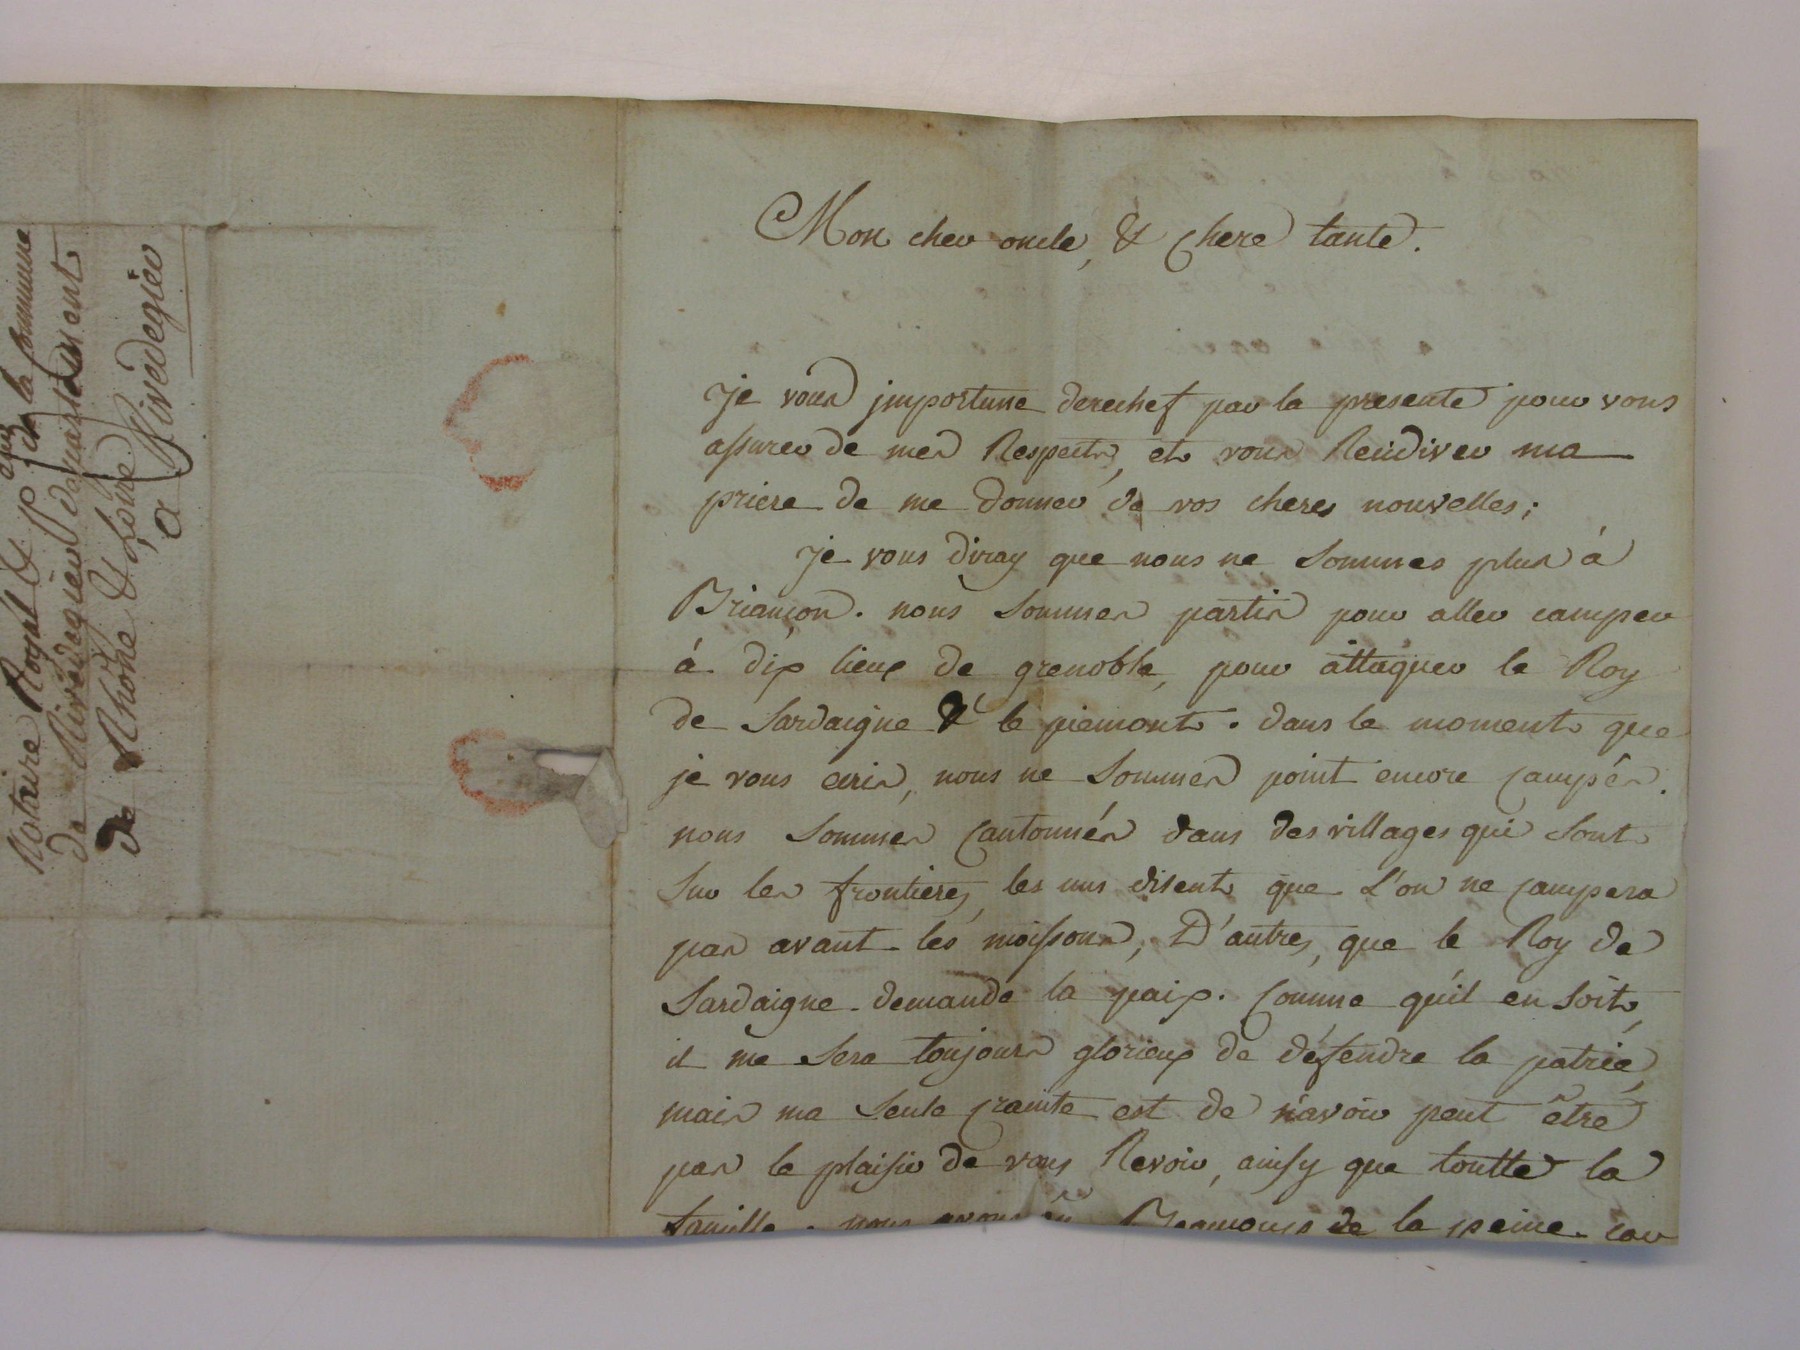 Mon cher oncle, & chere tante.
je vous jmportune derechef par la presente pour vous
assurer de mes Respects, et vous Reïdiver ma
priere de me donner de vos cheres nouvelles;
je vous diray que nous ne sommes plus à
Briançon. nous sommes partis pour aller camper
à dix lieux de grenoble, pour attaquer le Roy
de Sardaigne & le piemont. dans le moment que
je vous ecris, nous ne sommes point encore campés.
nous sommes cantonnés dans des villages qui sont
sur les frontieres, les uns disent que l'on ne campera
pas avant les moissons, D'autres, que le Roy de
Sardaigne demande la paix. comme qu'il en soit,
il me sera toujours glorieux de défendre la patrie,
mais ma seule crainte est de n'avoir peut être
pas le plaisir de vous Revoir, ainsy que toutte la
famille. nous avons eü Beaucoup de la peine. car
Notaire Royal &
de la commune
de Rivedegier departement
de Rhône & Loire
a Rivedegier